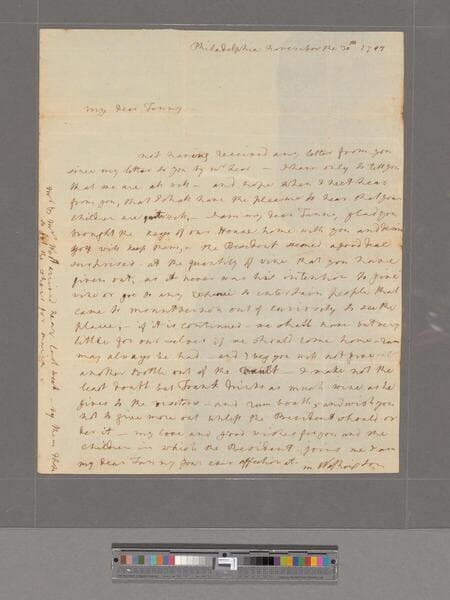 Philadelphia November the 30th 1794
my dear Fanny
not having received any letter from you
since my letter to you by last - I have only to tell you
that we are all well - and hope when I next hear
from you, that I shall have the pleasure to hear that your
children are quite well, - I am my dear Fanny, glad you
brought the keys of our House home with you and
you will keep them, - the President seemed a good deal
surprised at the quantity of wine that you have
given out, as it never was his intention to give
wine or go to any expence to entertain people that
came to mountvernon out of curiosity to see the
place, - if it is continued we shall have but very
little for our selves if we should come home - rum
may always be had - and I beg you will not give out
another bottle out of the vault - I make not the
least doubt but Frank drinks as much wine as he
gives to the visitors - and rum both, and wish you
not to give more out unless the President should or
der it - my love and good wishes for you and the
children in which the President joins me I am
my dear Fanny your ever affectionate m Washington
mr & mrs arrived hear last week - by them